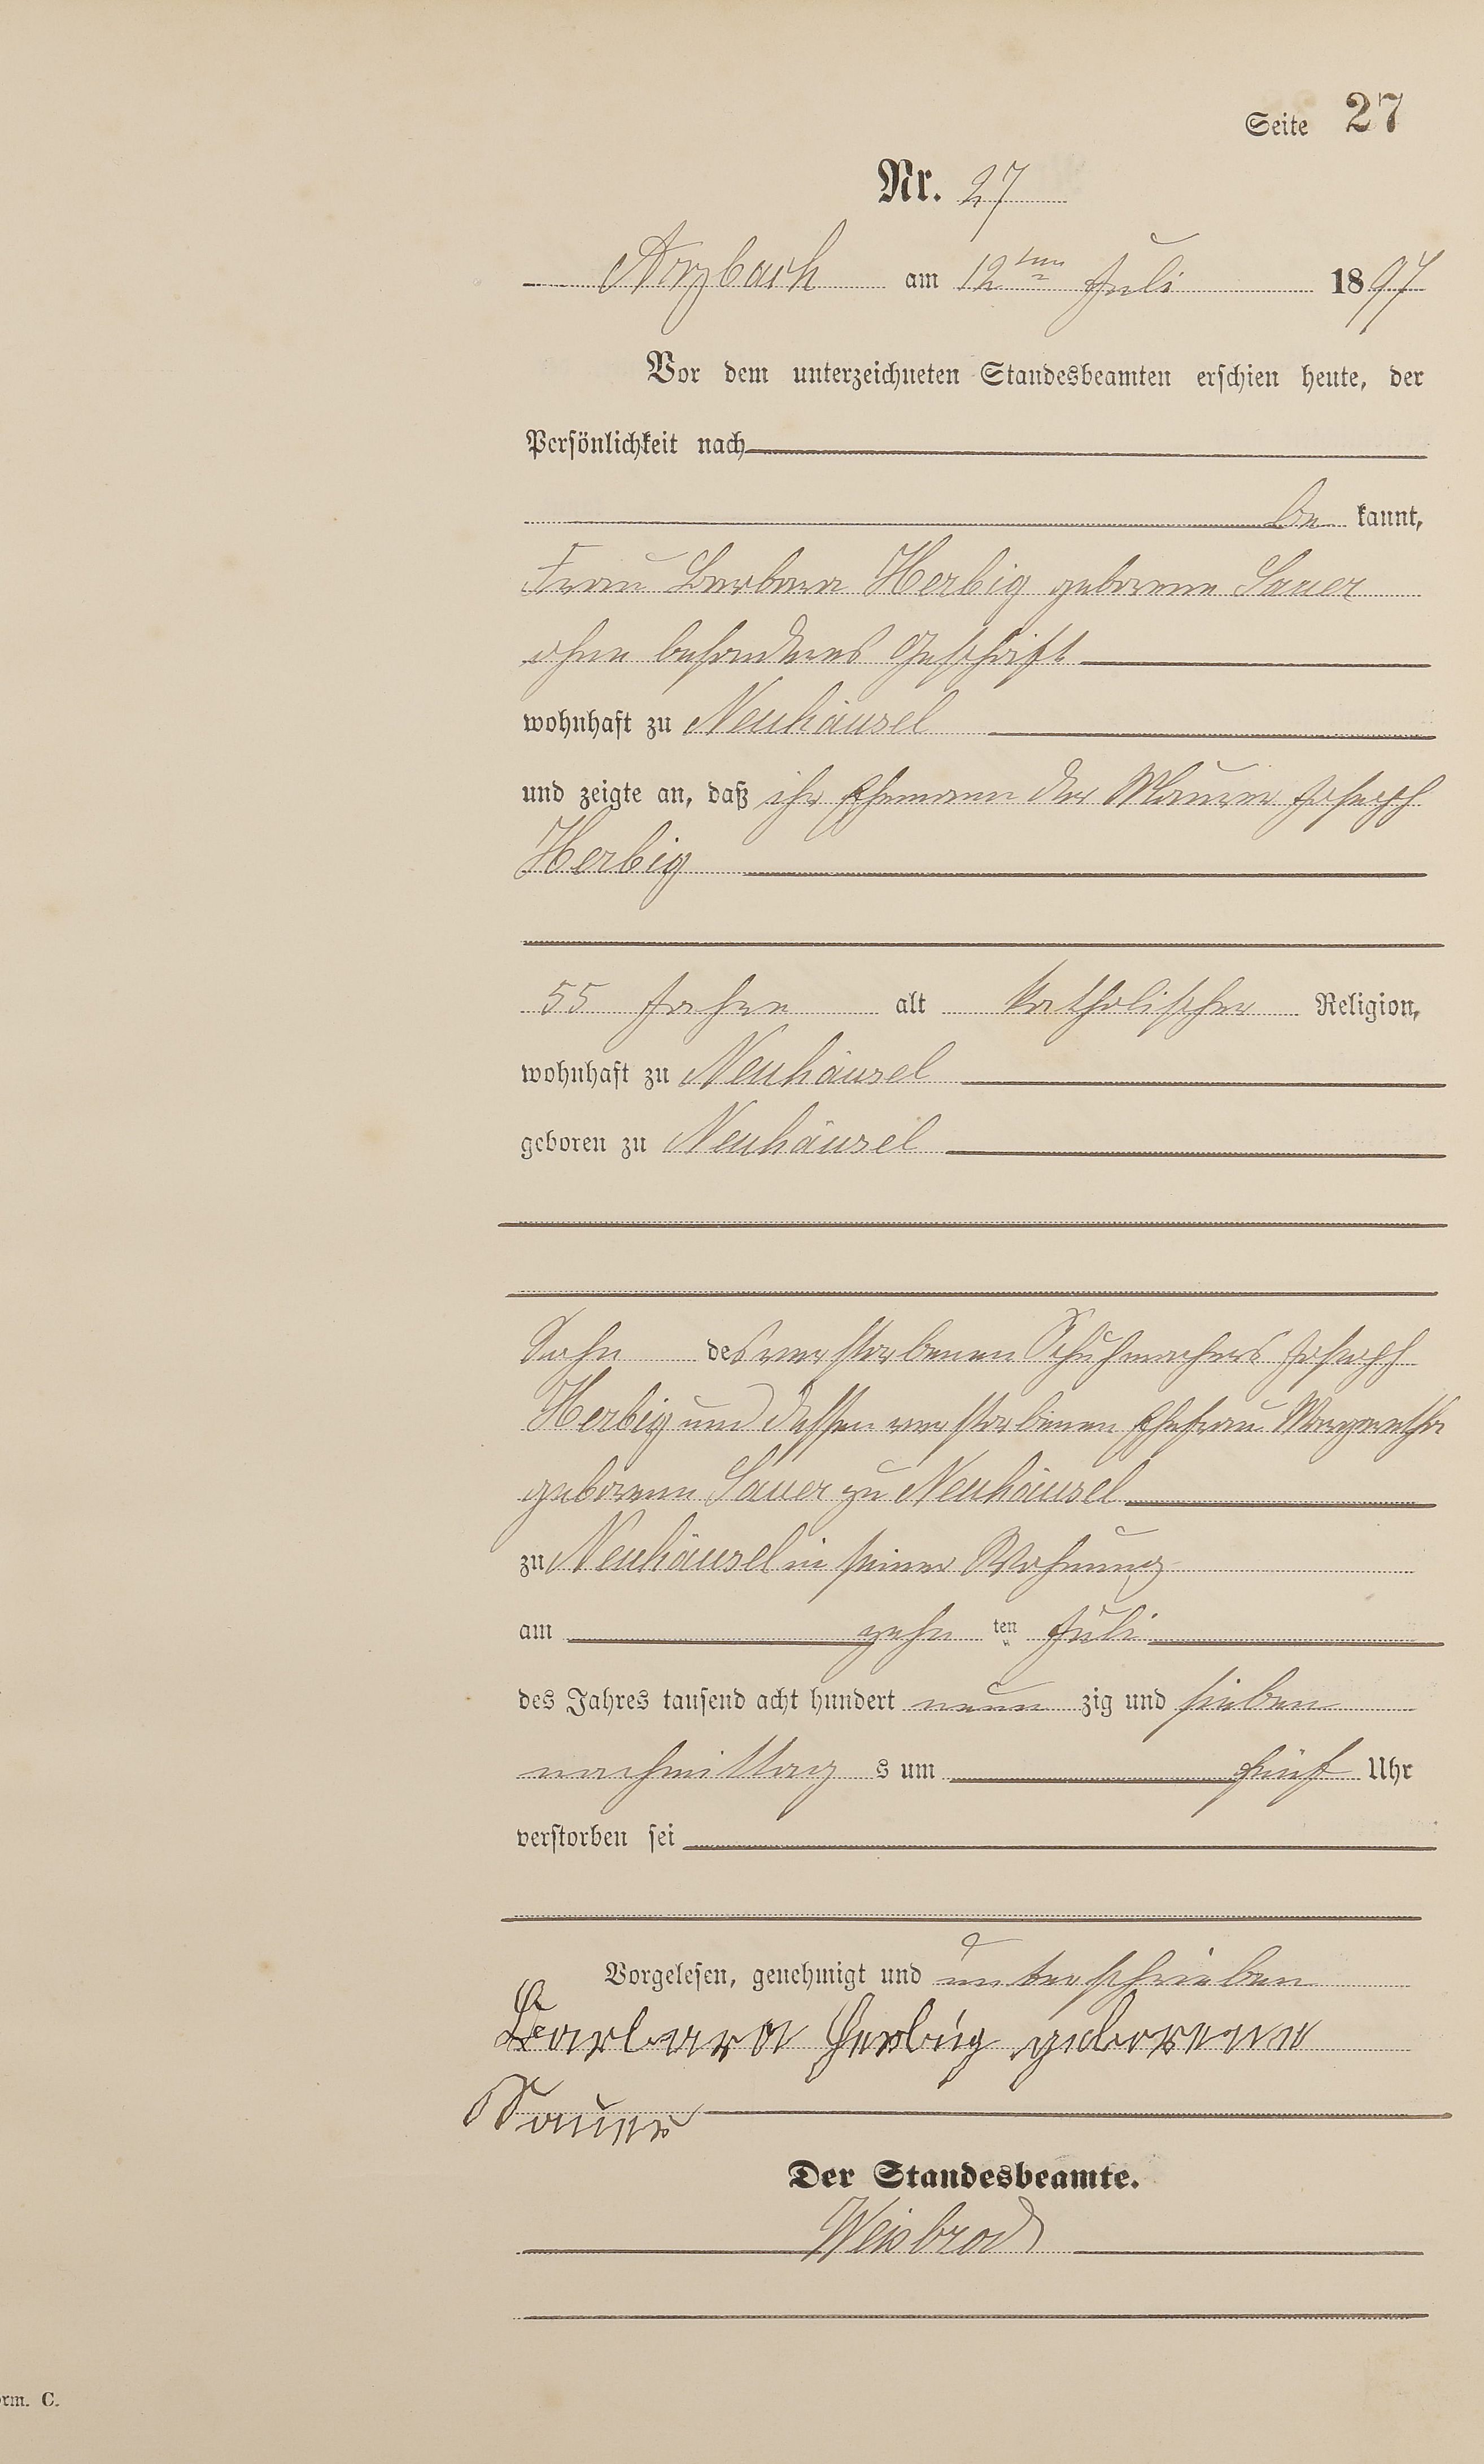 Seite 27
Nr. 27
Arzbach am 12ten Juli 1897
Vor dem unterzeichneten Standesbeamten erschien heute, der
Persönlichkeit nach
be kannt,
Frau Barbara Herbig geborene Sauer
ohne besonderes Geschäft
wohnhaft zu Neuhäusel
und zeigte an, daß ihr Ehemann der Maurer Joseph
Herbig
55 Jahre alt katholischer Religion,
wohnhaft zu Neuhäusel
geboren zu Neuhäusel
Sohn des verstorbenen Schuhmachers Joseph
Herbig und dessen verstorbenen Ehefrau Margaretha
geborenen Sauer zu Neuhäusel
zu Neuhäusel in seiner Wohnung
am zehn ten Juli
des Jahres tausend acht hundert neun zig und sieben
nachmittag s um fünf Uhr
verstorben sei
Vorgelesen, genehmigt und unterschrieben
Barbara Herbig geborene
Sauer
Der Standesbeamte.
Weisbrod
orm. C.